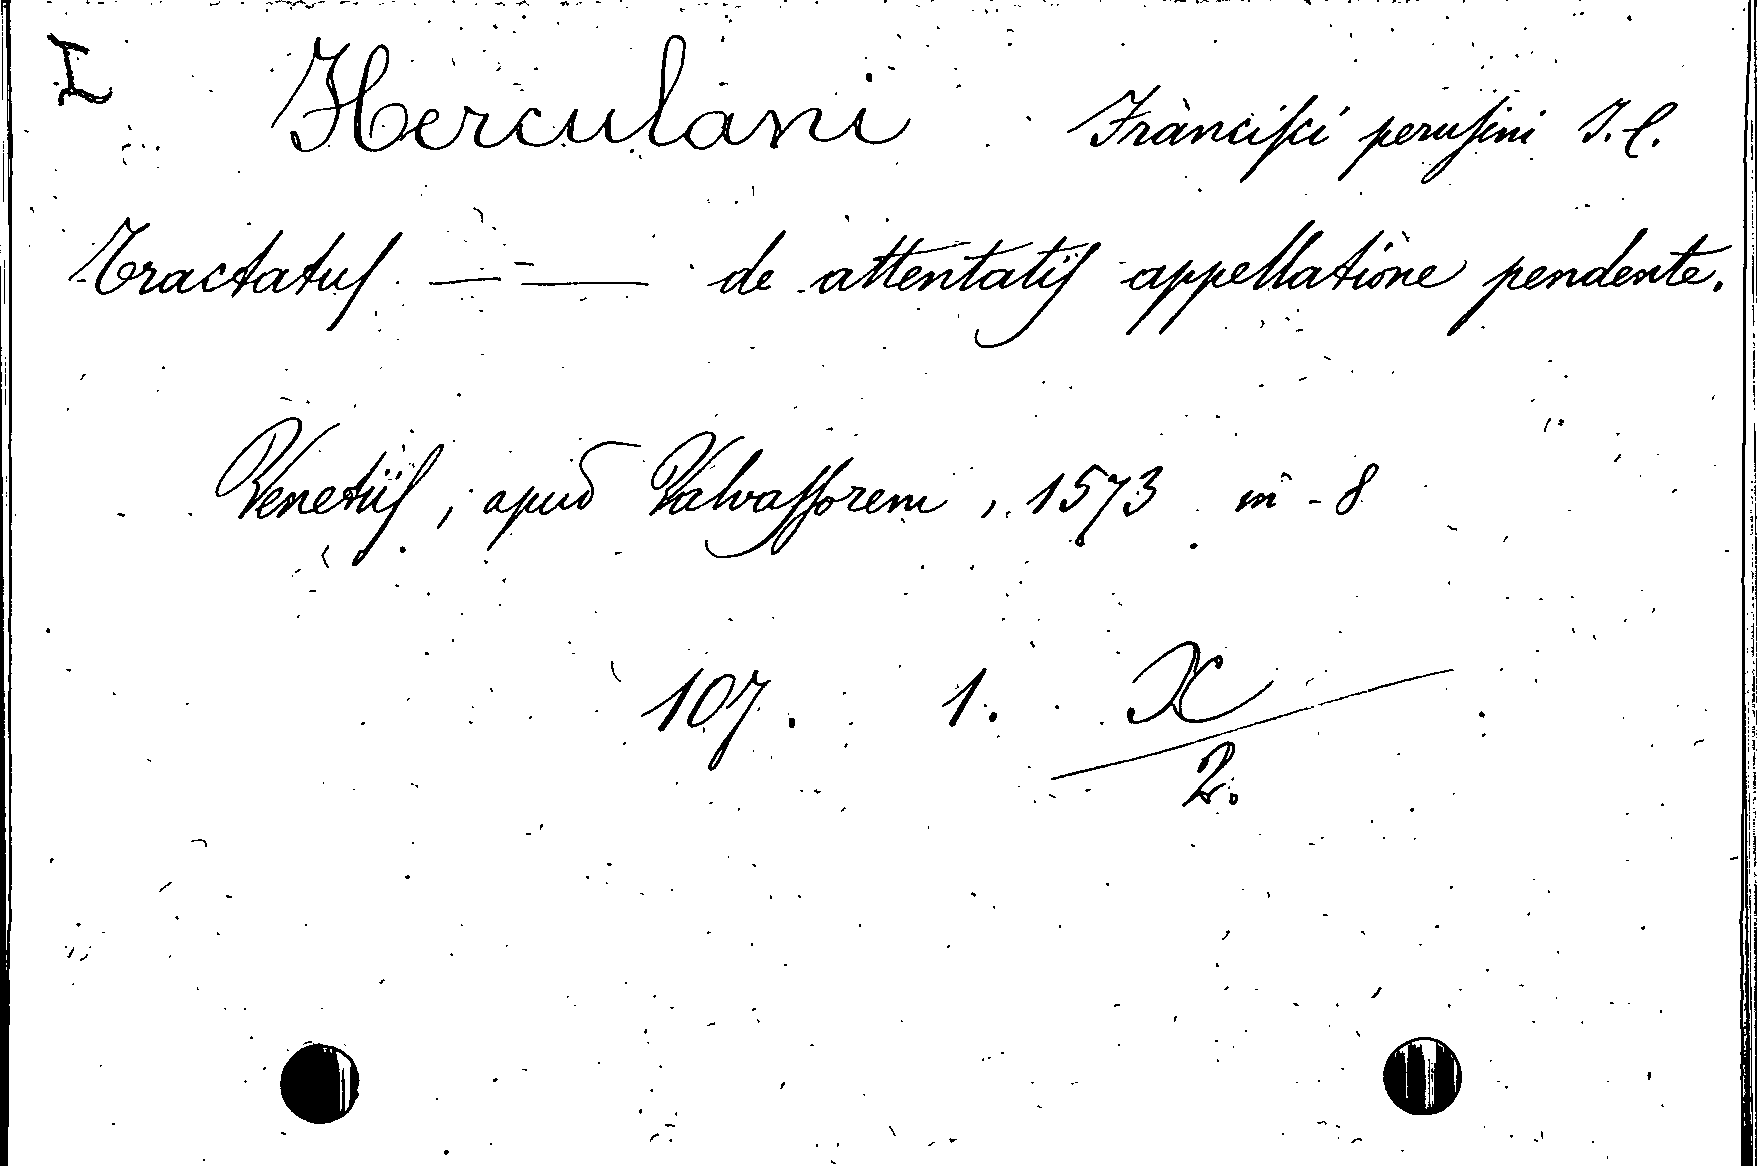 I Herculani Francisci perusini I. C.
Tractatus — — de attentatis appellatione pendente.
Venetiis, apud Valvassorem, 1573 in-8
107. 1. X
2.